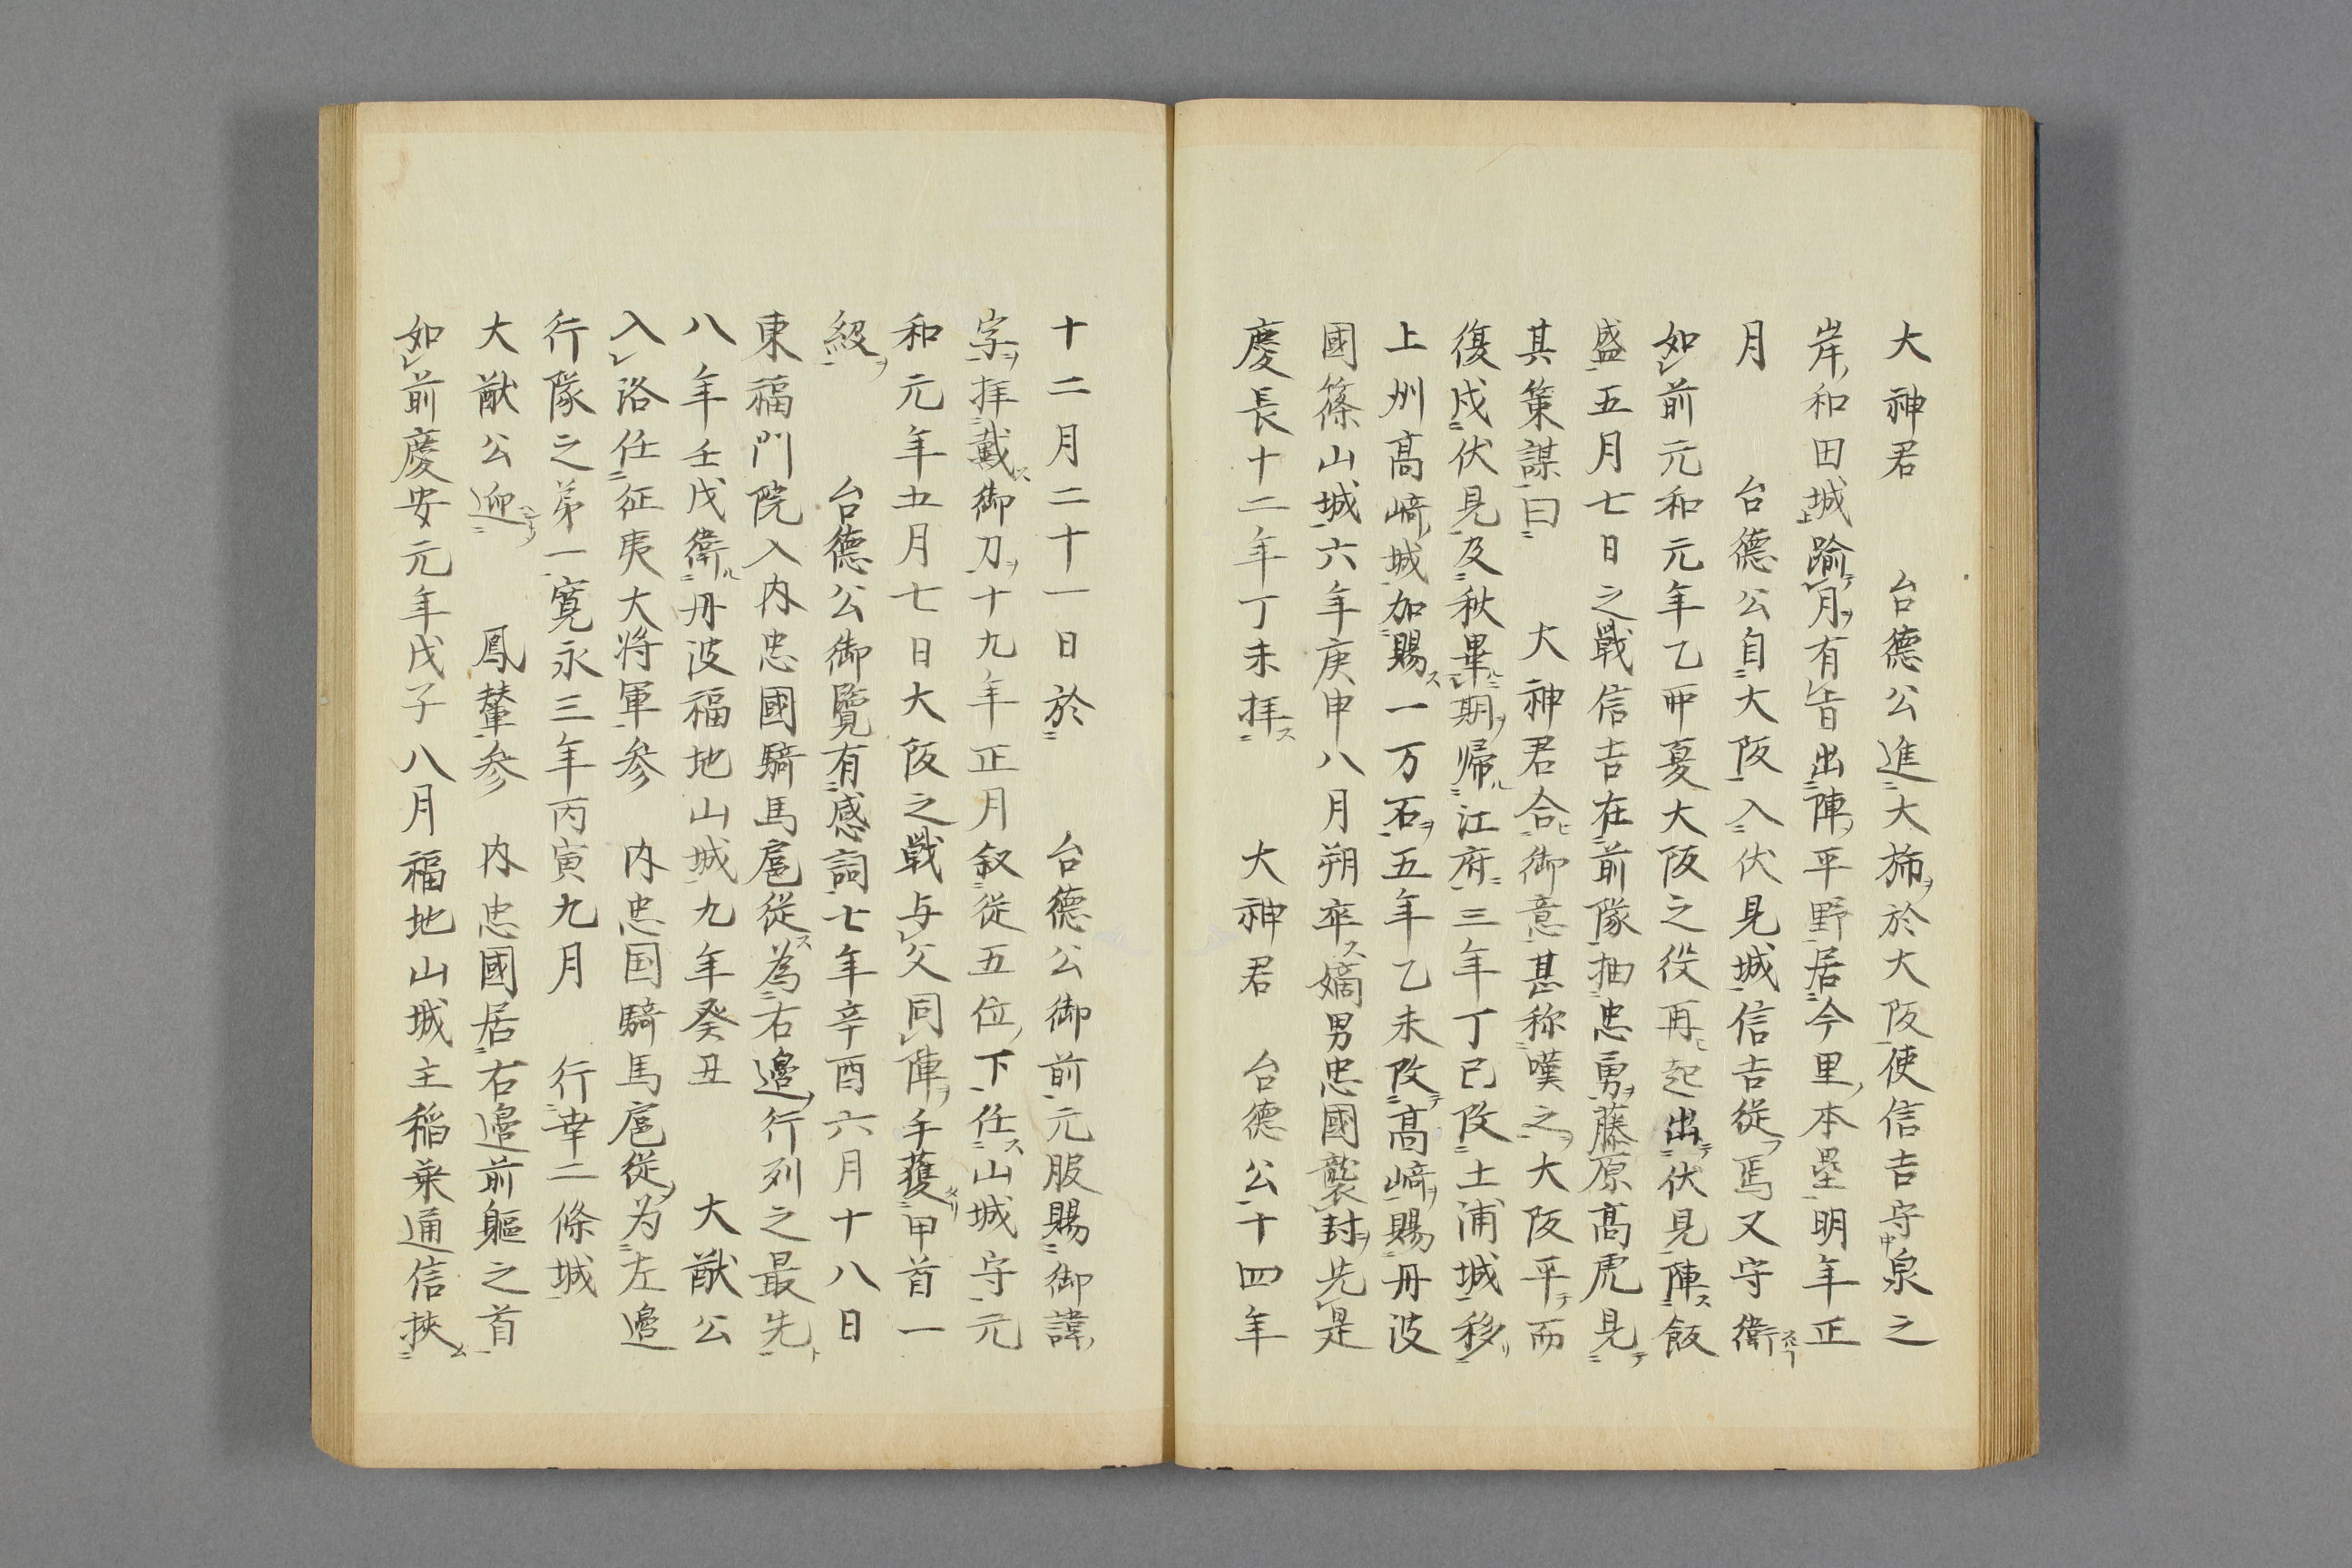 大神君　台德公進大斾於大阪使信吉守泉之
岸和田城踰月有旨出陣平野居今里本壘明年正
月　台德公自大阪入伏見城信吉從焉又守衛
如前元和元年乙夘夏大阪之役再起出伏見陣飯
盛五月七日之戰信吉在前隊抽忠勇藤原髙虎見
其策謀曰　大神君合御意甚称嘆之大阪平而
復戍伏見及秋畢期帰江府三年丁已改土浦城移
上州髙﨑城加賜一万石五年乙未改髙﨑賜丹波
國篠山城六年庚申八月朔卒嫡男忠國襲封先是
慶長十二年丁未拝　大神君　台德公十四年
十二月二十一日於　台德公御前元服賜御諱
字拝戴御刀十九年正月叙從五位下任山城守元
和元年五月七日大阪之戰与父同陣手獲甲首一
級　台德公御覽有感詞七年辛酉六月十八日
東福門院入内忠國騎馬扈從為右邉行列之最先
八年壬戌衛丹波福地山城九年癸丑　大猷公
入洛任征夷大将軍参　内忠国騎馬扈從为左邉
行隊之第一寛永三年丙寅九月　行幸二條城
大猷公迎　鳳輦参　内忠國居右邉前軀之首
如前慶安元年戊子八月福地山城主稲葉通信挾